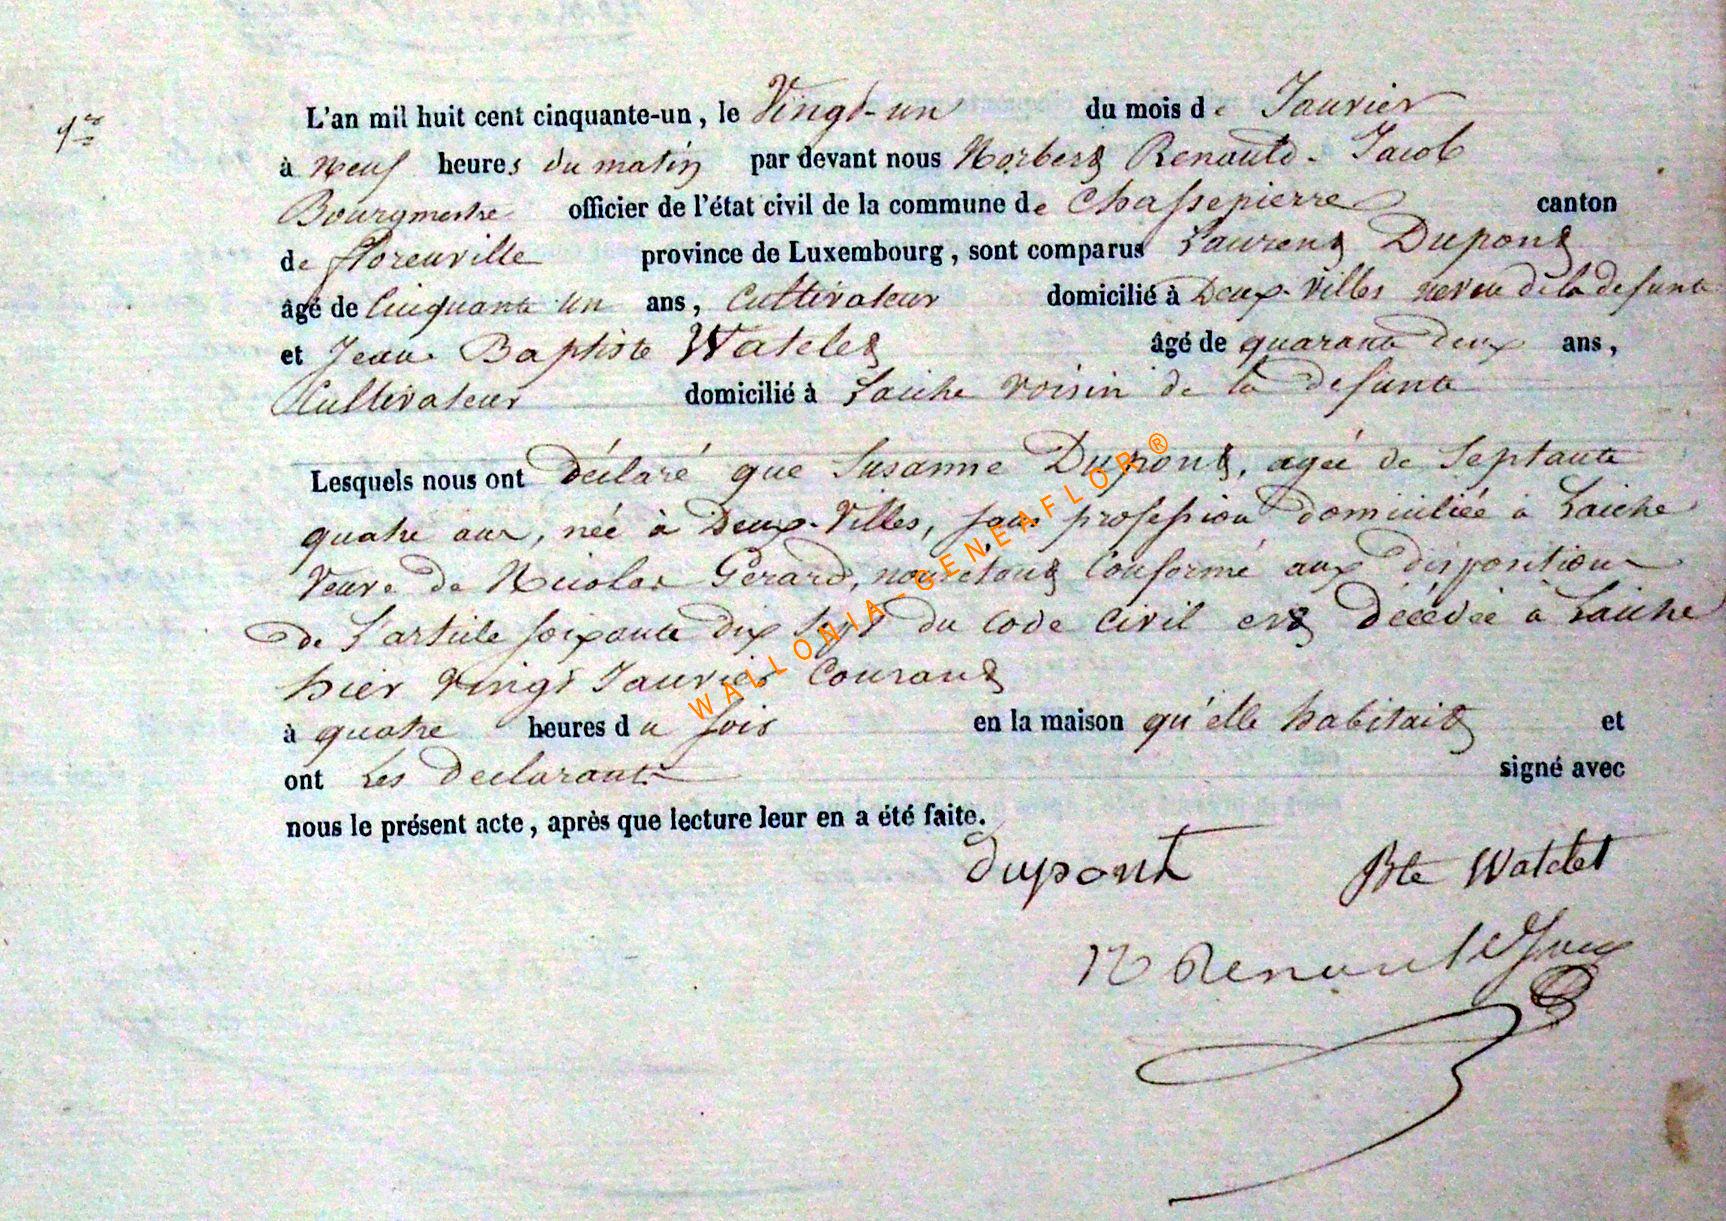 1er
L'an mil huit cent cinquante-un, le Vingt-un du mois de Janvier
à neuf heures du matin par devant nous Norbert Renauld-Jacob
Bourgmestre officier de l'état civil de la commune de Chassepierre canton
de florenville province de Luxembourg, sont comparus Laurent Dupont
âgé de Cinquante un ans, Cultivateur domicilié à Deux-Villes neveu de la defunte
et Jean Baptiste Watelet âgé de quarante deux ans,
Cultivateur domicilié à Laiche voisin de la defunte
Lesquels nous ont déclaré que Susanne Dupont, agée de Septante
quatre ans, née à Deux-Villes, sans profession domiciliée à Laiche
Veuve de Nicolas Gérard, nous étant Conformé aux dispositions
de L'article soixante dix sept du Code Civil est décédée à Laiche
hier vingt Janvier Courant
à quatre heures du soir en la maison qu'elle habitait et
ont Les declarants signé avec
nous le présent acte, après que lecture leur en a été faite.
dupont Bte Watelet
N Renauld Jacob
WALLONIA-GENEAFLOR®